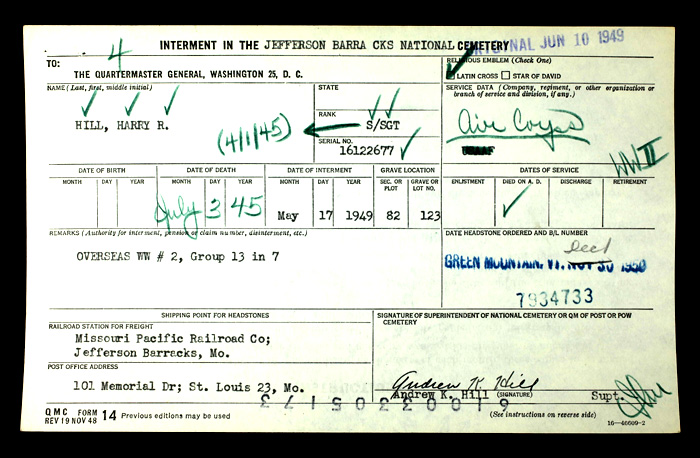 4
INTERMENT IN THE JEFFERSON BARRA CKS NATIONAL CEMETERY
ORIGINAL JUN 10 1949
TO:
THE QUARTERMASTER GENERAL, WASHINGTON 25, D. C.
RELIGIOUS EMBLEM (Check One)
LATIN CROSS STAR OF DAVID
NAME (Last, first, middle initial)
HILL, HARRY R.
(4/1/45)
STATE
RANK
S/SGT
SERIAL NO.
16122677
SERVICE DATA (Company, regiment, or other organization or
branch of service and division, if any.)
Air Corps
USAAF
WW II
DATE OF BIRTH
MONTH DAY YEAR
DATE OF DEATH
MONTH DAY YEAR
July 3 45
DATE OF INTERMENT
MONTH DAY YEAR
May 17 1949
GRAVE LOCATION
SEC. OR PLOT
GRAVE OR LOT NO.
82 123
DATES OF SERVICE
ENLISTMENT DIED ON A. D. DISCHARGE RETIREMENT
REMARKS (Authority for interment, pension or claim number, disinterment, etc.)
OVERSEAS WW # 2, Group 13 in 7
DATE HEADSTONE ORDERED AND B/L NUMBER
GREEN MOUNTAIN, VT. NOV 30 1950
7934733
SHIPPING POINT FOR HEADSTONES
RAILROAD STATION FOR FREIGHT
Missouri Pacific Railroad Co;
Jefferson Barracks, Mo.
POST OFFICE ADDRESS
101 Memorial Dr; St. Louis 23, Mo.
SIGNATURE OF SUPERINTENDENT OF NATIONAL CEMETERY OR QM OF POST OR POW
CEMETERY
Andrew K. Hill
Andrew K. Hill (SIGNATURE) Supt.
(See instructions on reverse side)
QMC FORM 14 Previous editions may be used
REV 19 NOV 48
16—46609-2